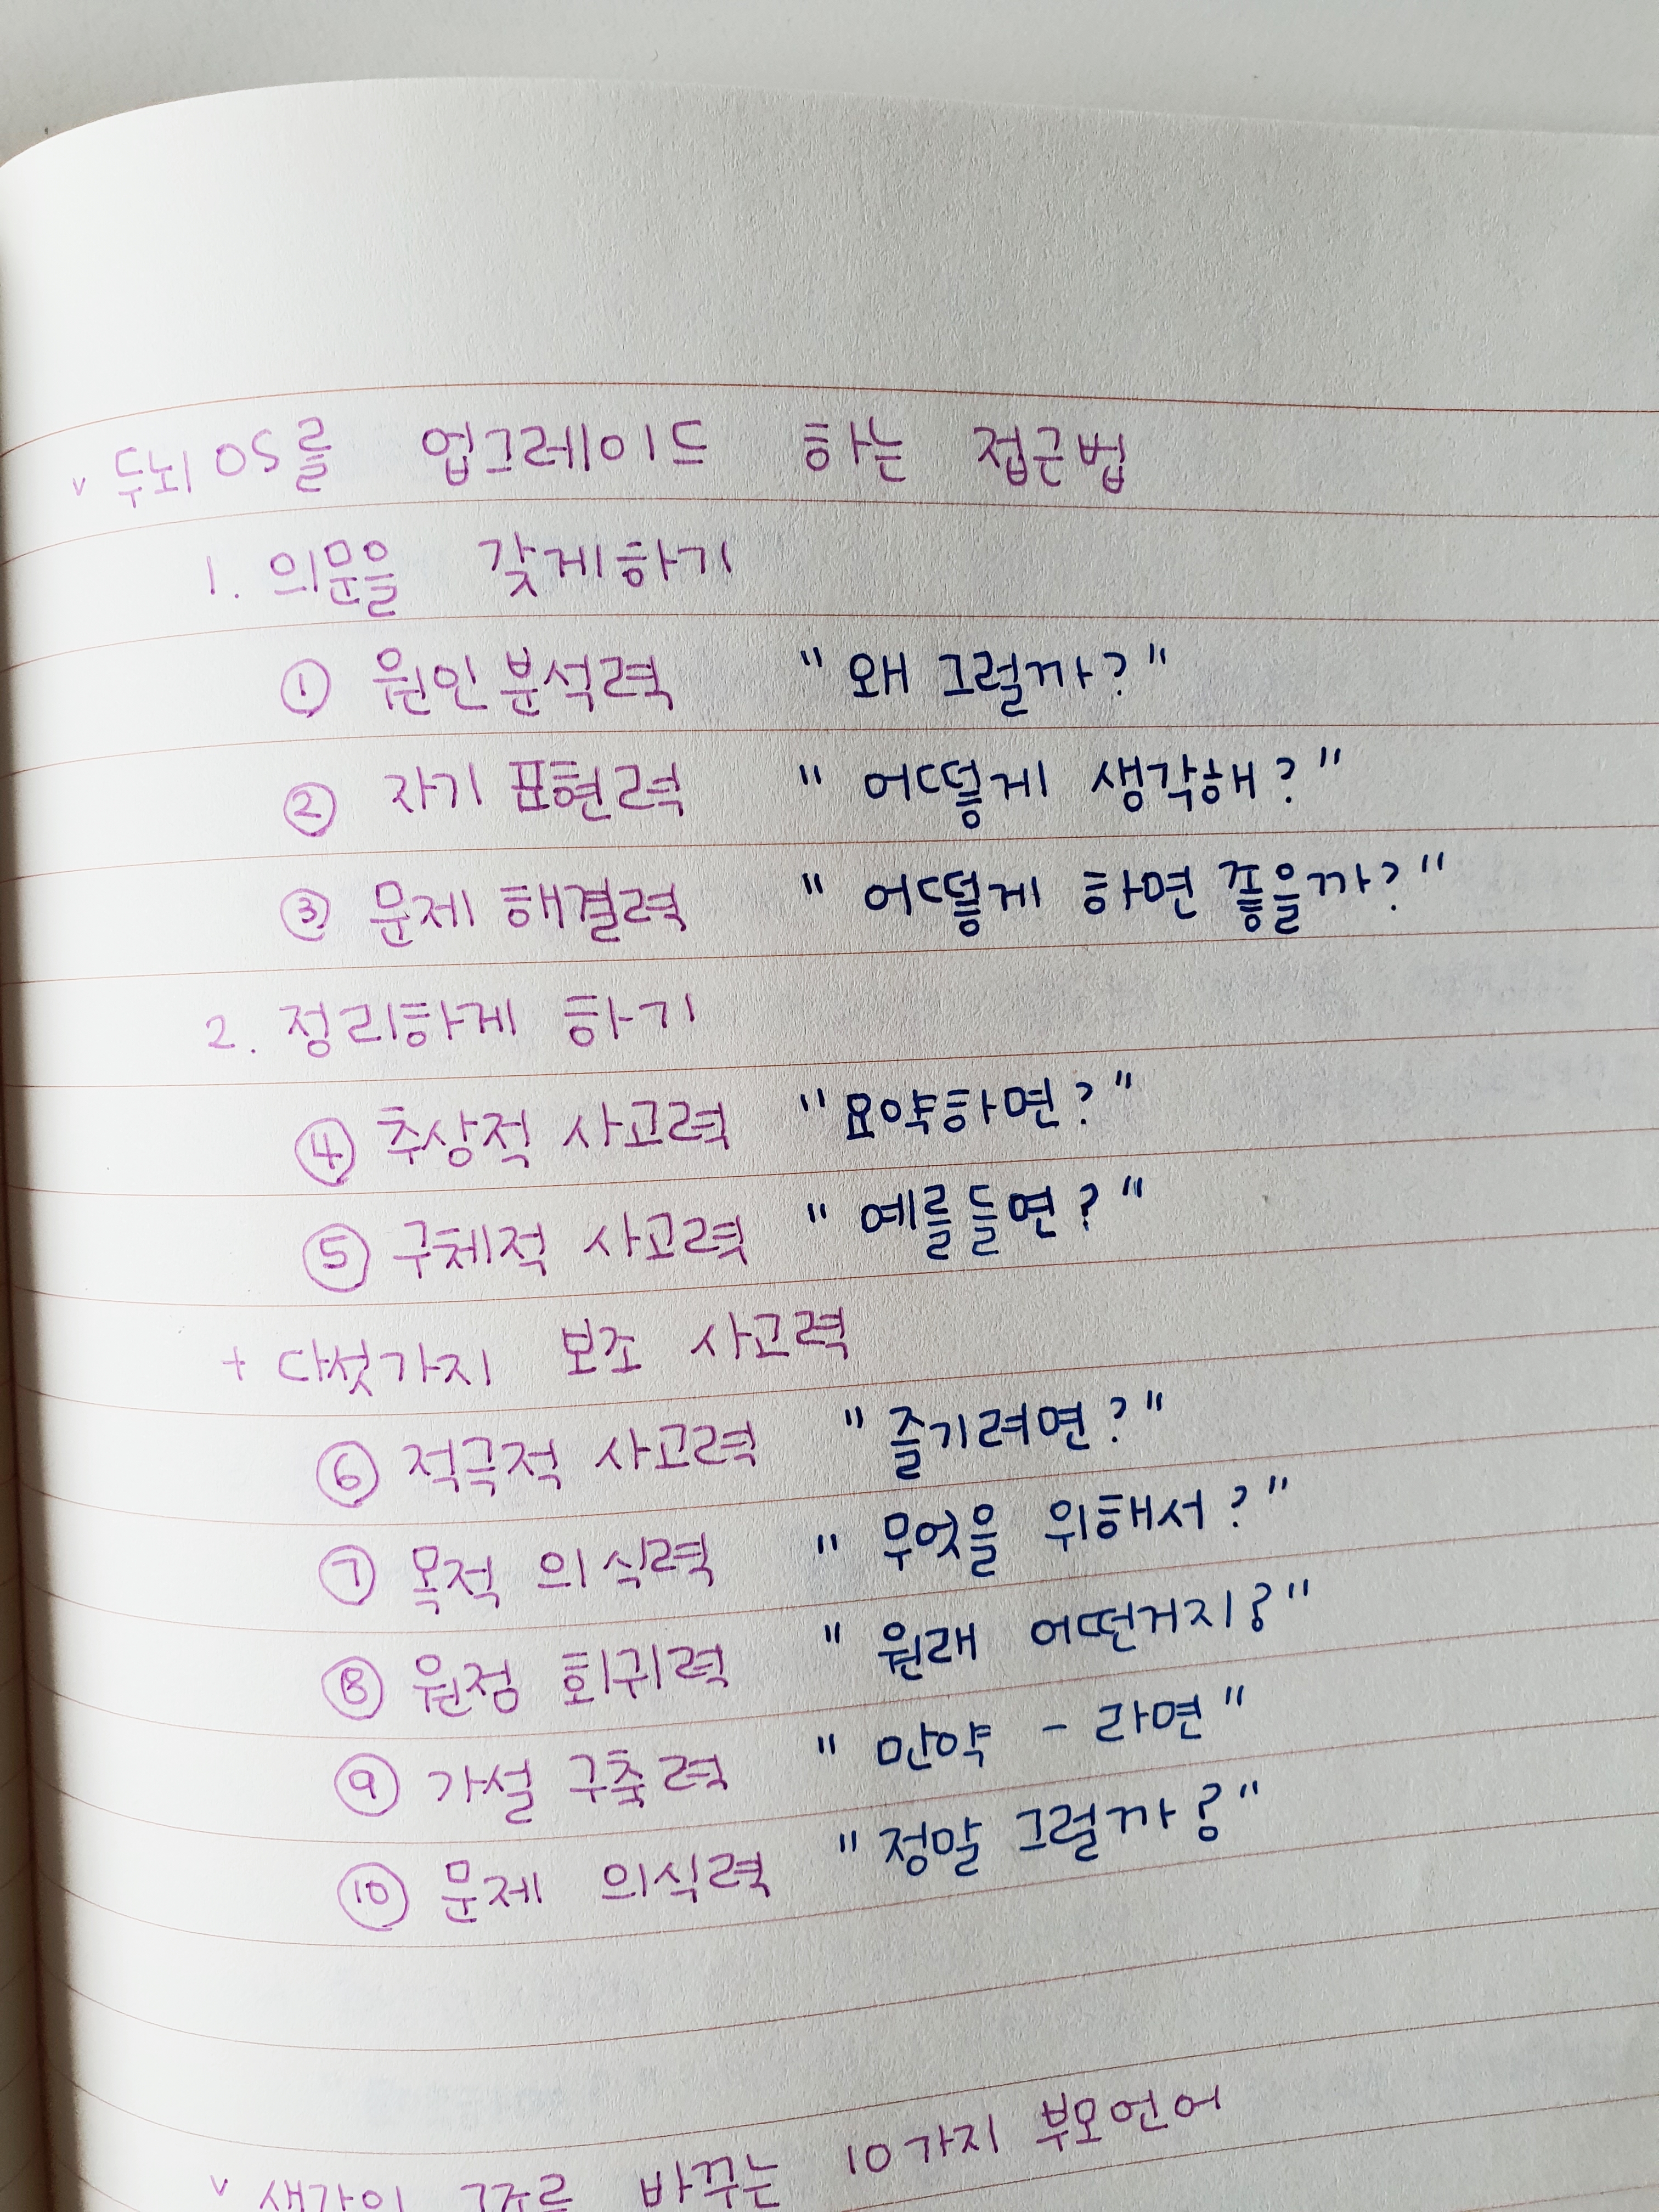 v 두뇌 OS를 업그레이드 하는 접근법
1. 의문을 갖게하기
① 원인 분석력 " 왜 그럴까? "
② 자기 표현력 " 어떻게 생각해? "
③ 문제 해결력 " 어떻게 하면 좋을까? "
2. 정리하게 하기
④ 추상적 사고력 " 요약하면? "
⑤ 구체적 사고력 " 예를들면? "
+ 다섯가지 보조 사고력
⑥ 적극적 사고력 " 즐기려면? "
⑦ 목적 의식력 " 무엇을 위해서? "
⑧ 원점 회귀력 " 원래 어떤거지? "
⑨ 가설 구축력 " 만약 - 라면 "
⑩ 문제 의식력 " 정말 그럴까? "
v 생각의 구조를 바꾸는 10가지 부모언어